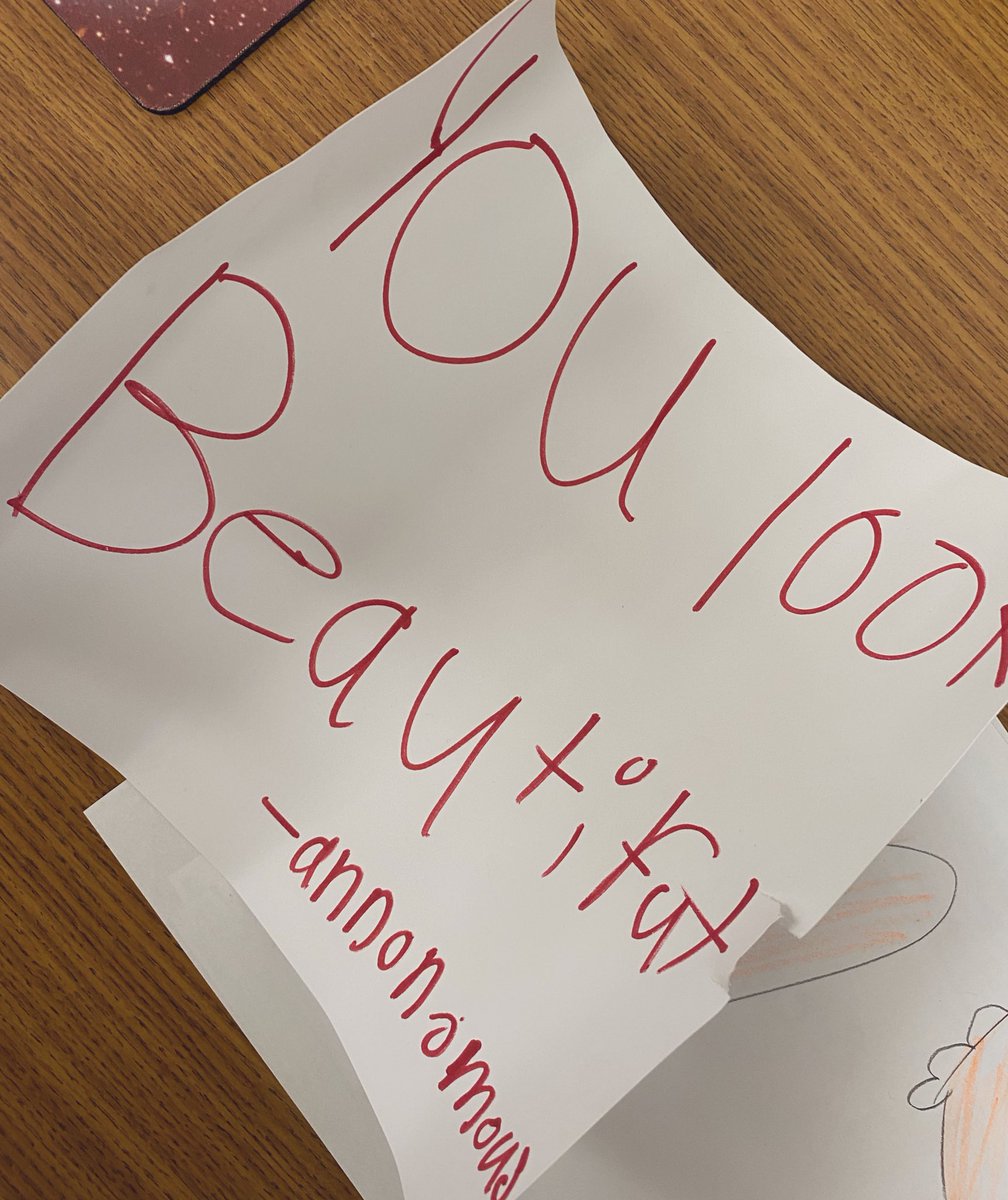 You look
Beautifut
-annonamous